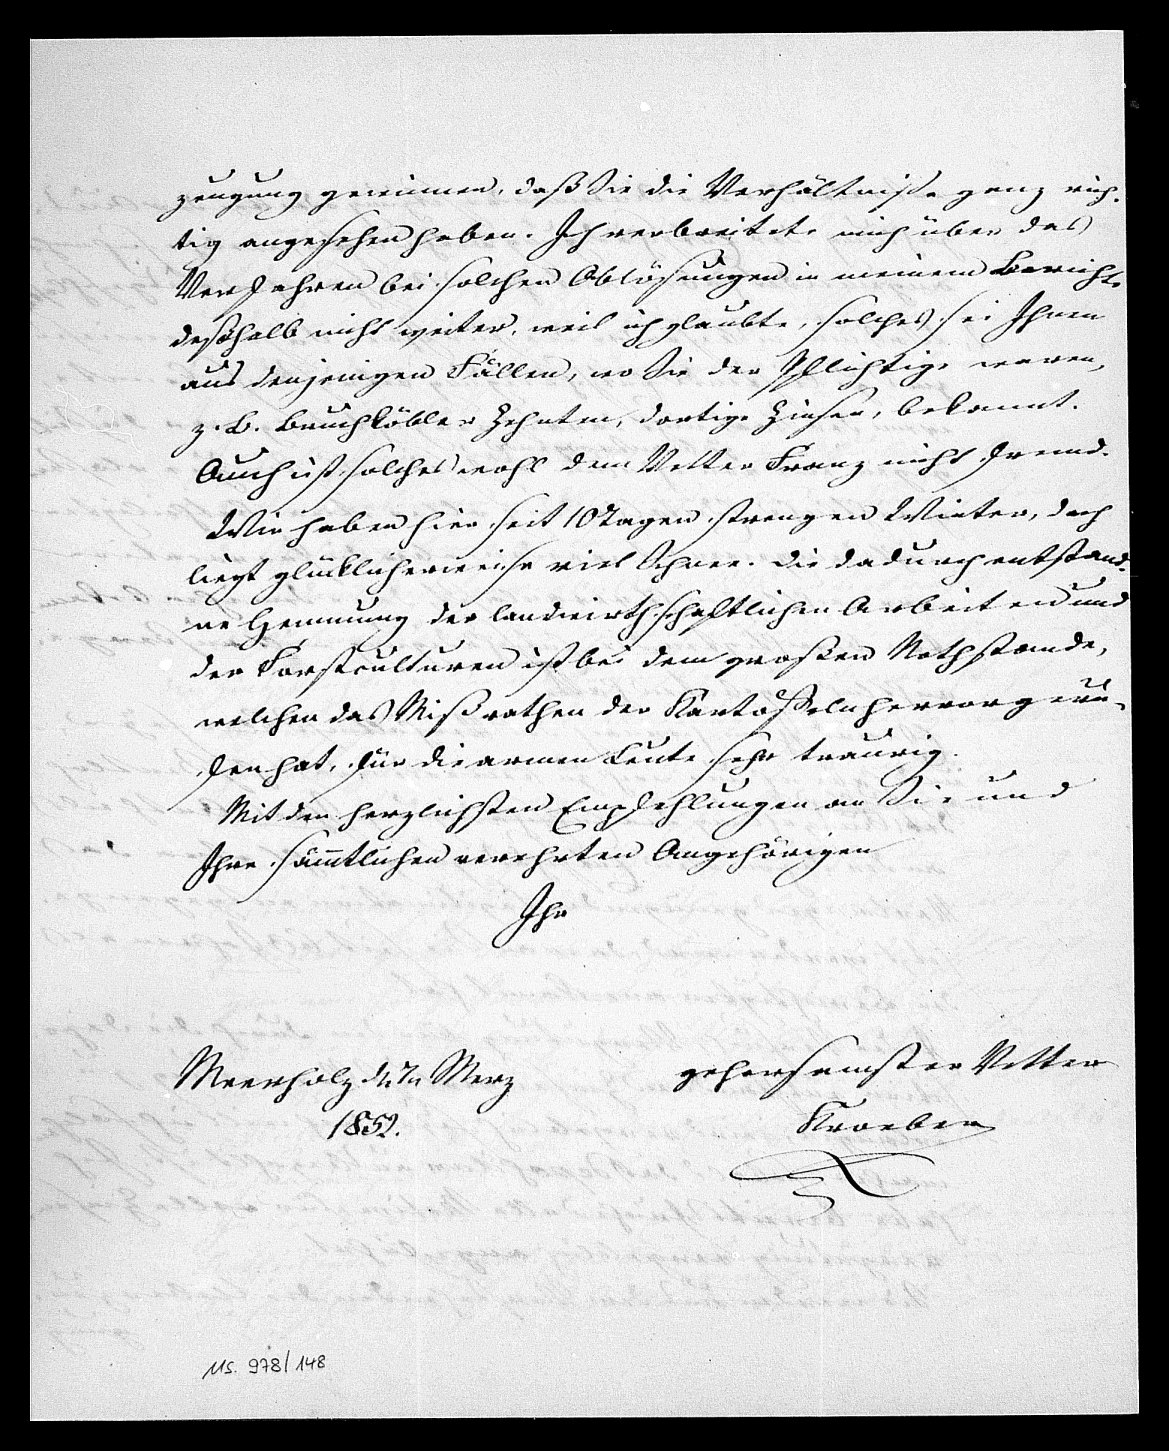 zeugung gewinnen, daß Sie die Verhältniße ganz rich-
tig angesehen haben. Ich verbreitete mich über das
Verfahren bei solchen Ablösungen in meinem Bericht
deßhalb nicht weiter, weil ich glaubte, solches sei Ihnen
aus denjenigen Fällen, wo Sie der Pflichtige waren,
z. B. Bruchköbler Zehnten, dortige Zinsen, bekannt.
Auch ist solches wohl dem Vetter Franz nicht fremd.
Wir haben hier seit 10 Tagen strengen Winter, doch
liegt glücklicherweise viel Schnee. Die dadurch entstand-
ne Hemmung der landwirthschaftlichen Arbeiten und
der Forstculturen ist bei dem großen Nothstande,
welchen das Mißrathen der Kartoffeln hervorgeru-
fen hat, für die armen Leute sehr traurig.
Mit den herzlichsten Empfehlungen an Sie und
Ihre sämtlichen verehrten Angehörigen
Ihr
Meerholz d. 7n Merz
gehorsamster Vetter
1852.
Kroeber
Ms. 978/148